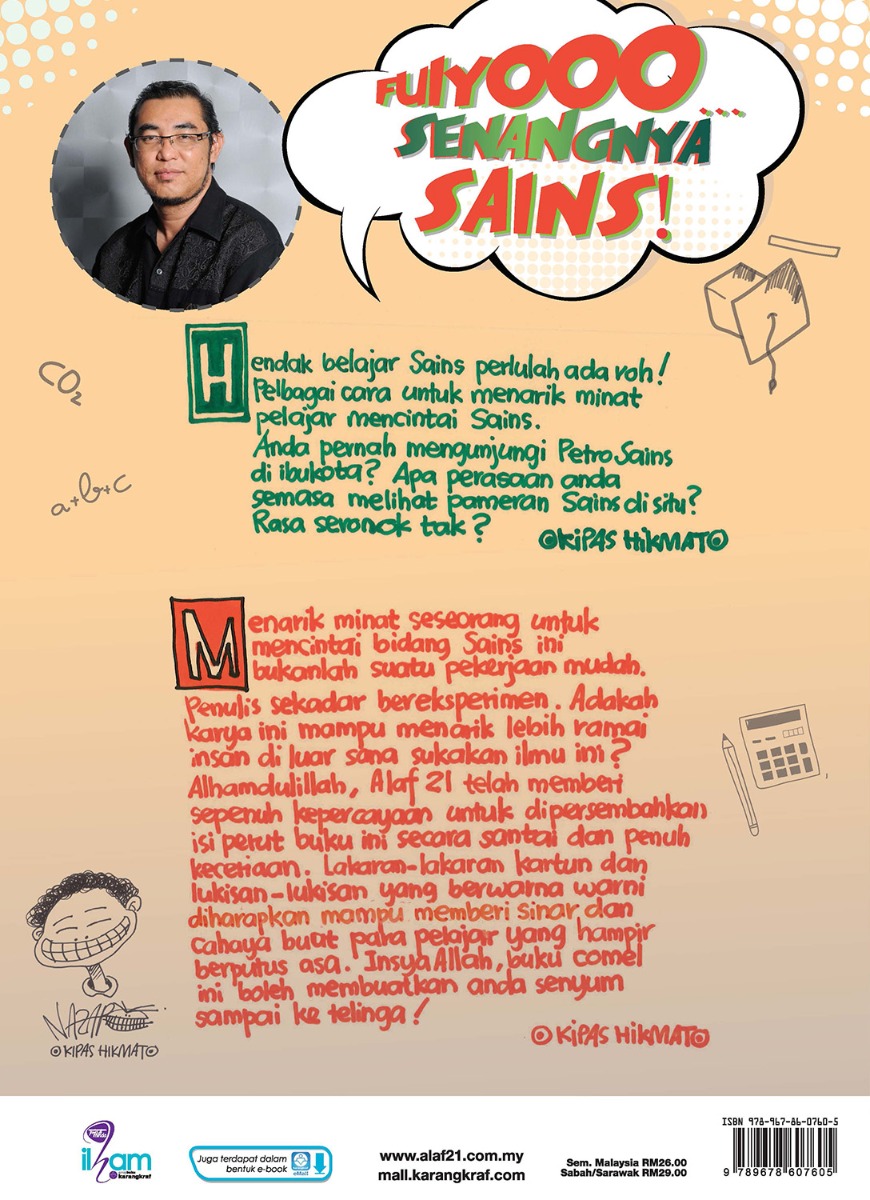 FUIYOOO...
SENANGNYA
SAINS!
Hendak belajar Sains perlulah ada roh!
Pelbagai cara untuk menarik minat
pelajar mencintai Sains.
Anda pernah mengunjungi Petro Sains
di ibukota? Apa perasaan anda
semasa melihat pameran Sains di situ?
Rasa seronok tak?
©KIPAS HIKMATO
CO₂
a+b+c
Menarik minat seseorang untuk
mencintai bidang Sains ini
bukanlah suatu pekerjaan mudah.
Penulis sekadar bereksperimen. Adakah
karya ini mampu menarik lebih ramai
insan di luar sana sukakan ilmu ini?
Alhamdulillah, Alaf 21 telah memberi
sepenuh kepercayaan untuk dipersembahkan
isi perut buku ini secara santai dan penuh
keceriaan. Lakaran-lakaran kartun dan
lukisan-lukisan yang berwarna warni
diharapkan mampu memberi sinar dan
cahaya buat para pelajar yang hampir
berputus asa. InsyaAllah, buku comel
ini boleh membuatkan anda senyum
sampai ke telinga!
© KIPAS HIKMATO
© KIPAS HIKMATO
ilham
karangkraf
Juga terdapat dalam
bentuk e-book
eMall
www.alaf21.com.my
mall.karangkraf.com
Sem. Malaysia RM26.00
Sabah/Sarawak RM29.00
ISBN 978-967-86-0760-5
9 789678 607605